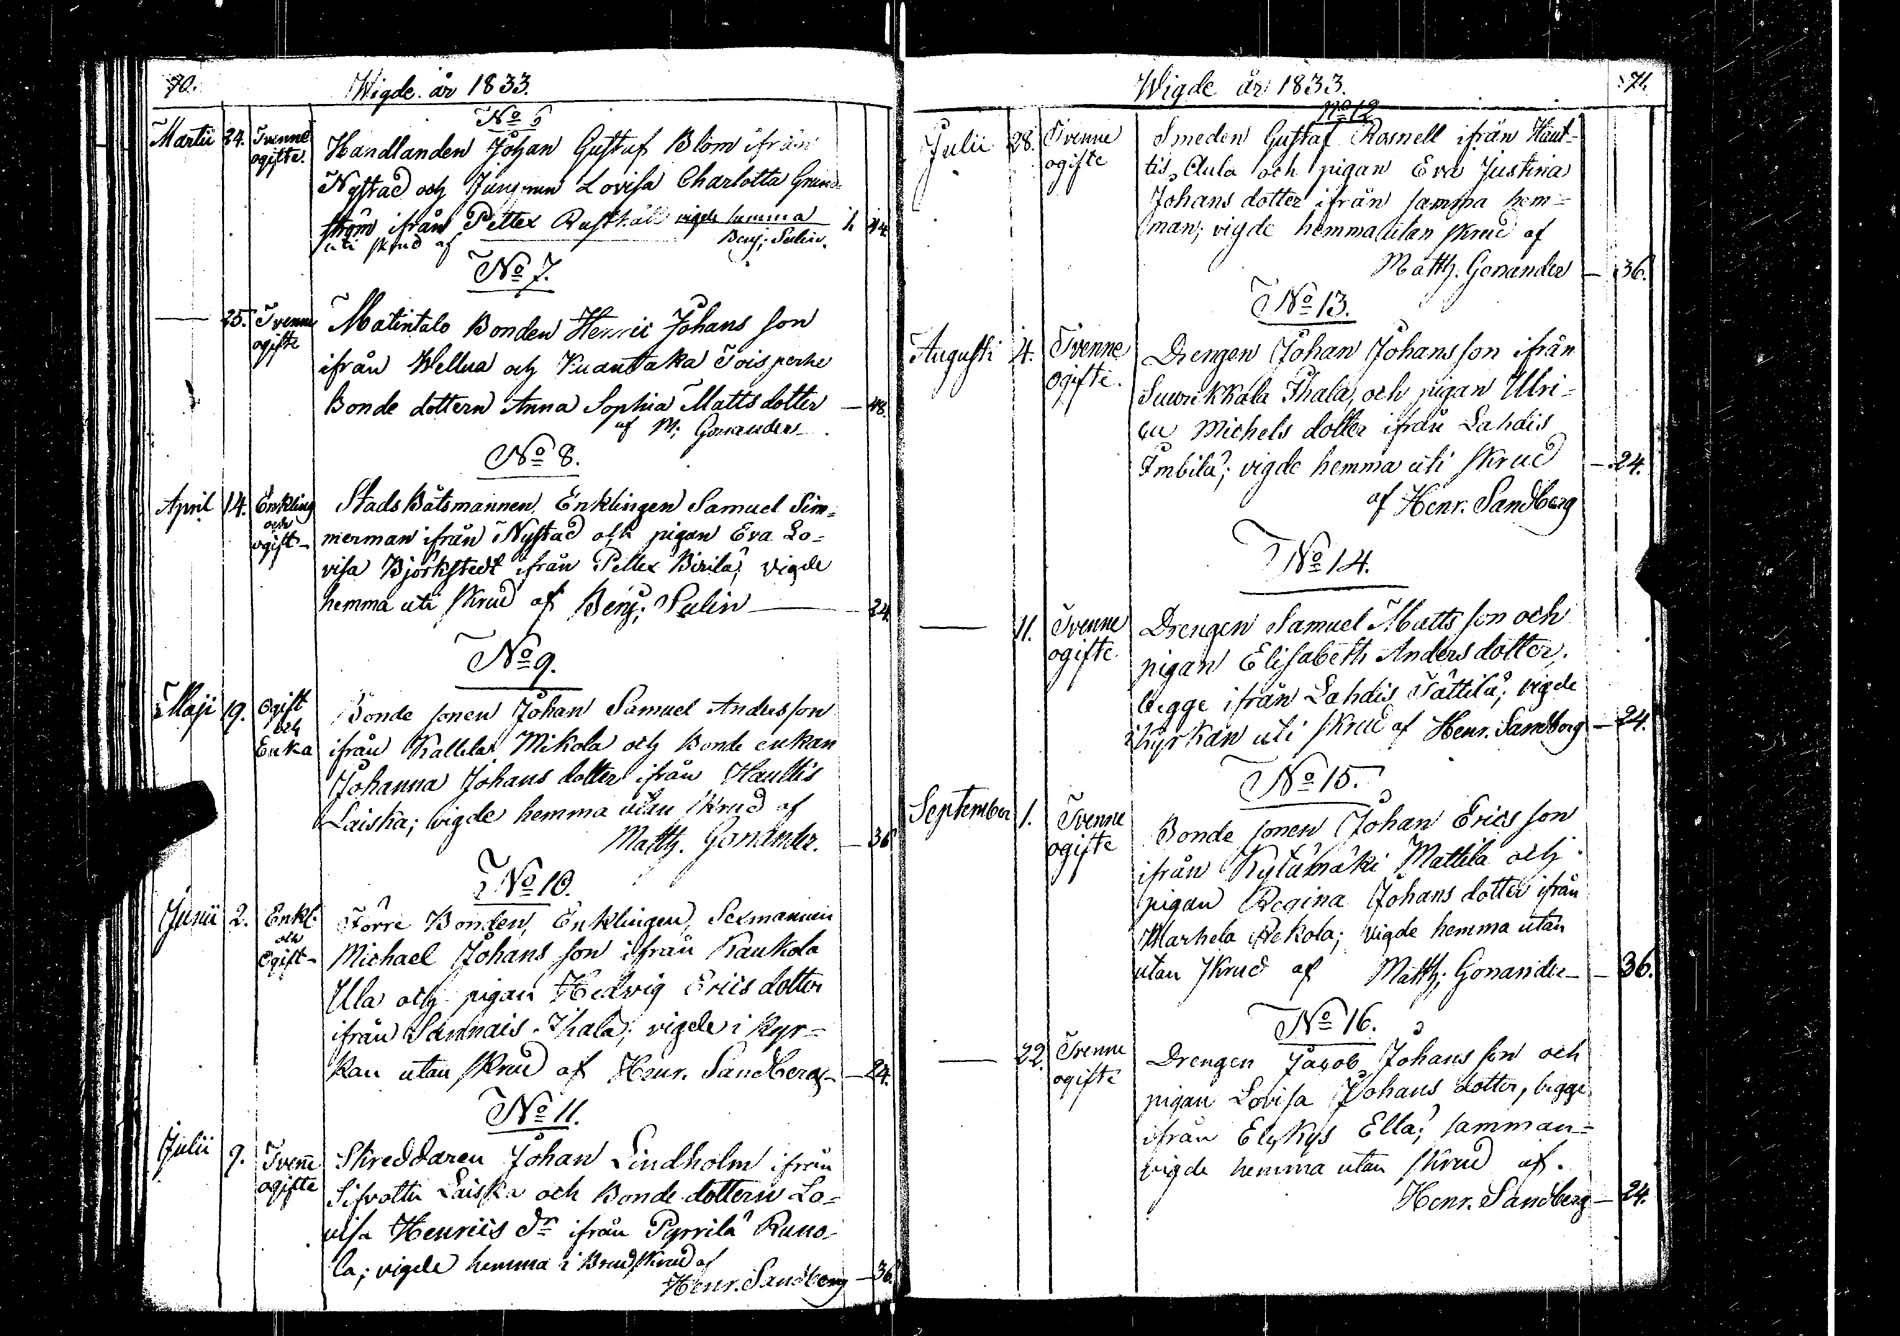 70.
Wigde år 1833.
No 6
Martii 24. Tvenne ogifte.
Handlanden Johan Gustaf Blom ifrån
Nystad och Jungfrun Lovisa Charlotta Grund-
ström ifrån Peltex Rusthåll vigde hemma
uti skrud af Benj: Salin. 1 44
No 7.
— 25. Tvenne ogifte
Matintalo Bonden Henric Johans son
ifrån Wellua och Kuanttaka Toisperhe
Bonde dottern Anna Sophia Matts dotter — 48.
af M; Gonander
No 8.
April 14. Enkling och ogift-
Stads Båtsmannen, Enklingen Samuel Sim-
merman ifrån Nystad och pigan Eva Lo-
visa Björkstedt ifrån Peltex Birila; vigde
hemma uti skrud af Benj; Salin — 24.
No 9.
Maji 19. Ogift och Enka
Bonde sonen Johan Samuel Andersson
ifrån Kallela Mikola och Bonde enkan
Johanna Johans dotter ifrån Hauttis
Laiska; vigde hemma utan skrud af
Matth. Gonander. — 36
No 10.
Junii 2. Enkl. och Ogift-
Förre Bonden, Enklingen, Sexmannen
Michael Johans son ifrån Kaukola
Ula och pigan Hedvig Erics dotter
ifrån Sannais Ihala; vigde i kyr-
kan utan skrud af Henr. Sandberg — 24.
No 11.
Julii 9. Tvenne ogifte
Skreddaren Johan Lindholm ifrån
Sifvottu Laiska och Bonde dottern Lo-
visa Henrics dr ifrån Pyrrilä Runo-
la; vigde hemma i Brudskrud af
Henr. Sandberg — 36.
Wigde år 1833. 71.
No 12
Julii 28. Tvenne ogifte
Smeden Gustaf Rosnell ifrån Haut-
tis Aula och pigan Eva Justina
Johans dotter ifrån samma hem-
man; vigde hemma utan skrud af
Matth. Gonander — 36.
No 13.
Augusti 4. Tvenne ogifte.
Drengen Johan Johansson ifrån
Suurikkala Ihala, och pigan Ulri-
ca Michels dotter ifrån Lahdis
Imbilä; vigde hemma uti skrud — 24.
af Henr. Sandberg
No 14.
— 11. Tvenne ogifte.
Drengen Samuel Matts son och
pigan Elisabeth Anders dotter,
begge ifrån Lahdis Tättilä; vigde
i kyrkan uti skrud af Henr. Sandberg — 24.
No 15.
September 1. Tvenne ogifte
Bonde sonen Johan Erics son
ifrån Kylämäki Mattila och
pigan Regina Johans dotter ifrån
Tharhela Pekola; vigde hemma utan
utan skrud af Matth; Gonander — 36.
No 16.
— 22. Tvenne ogifte
Drengen Jacob Johans son och
pigan Lovisa Johans dotter, begge
ifrån Elykys Ella; samman-
vigde hemma utan skrud af.
Henr. Sandberg — 24.